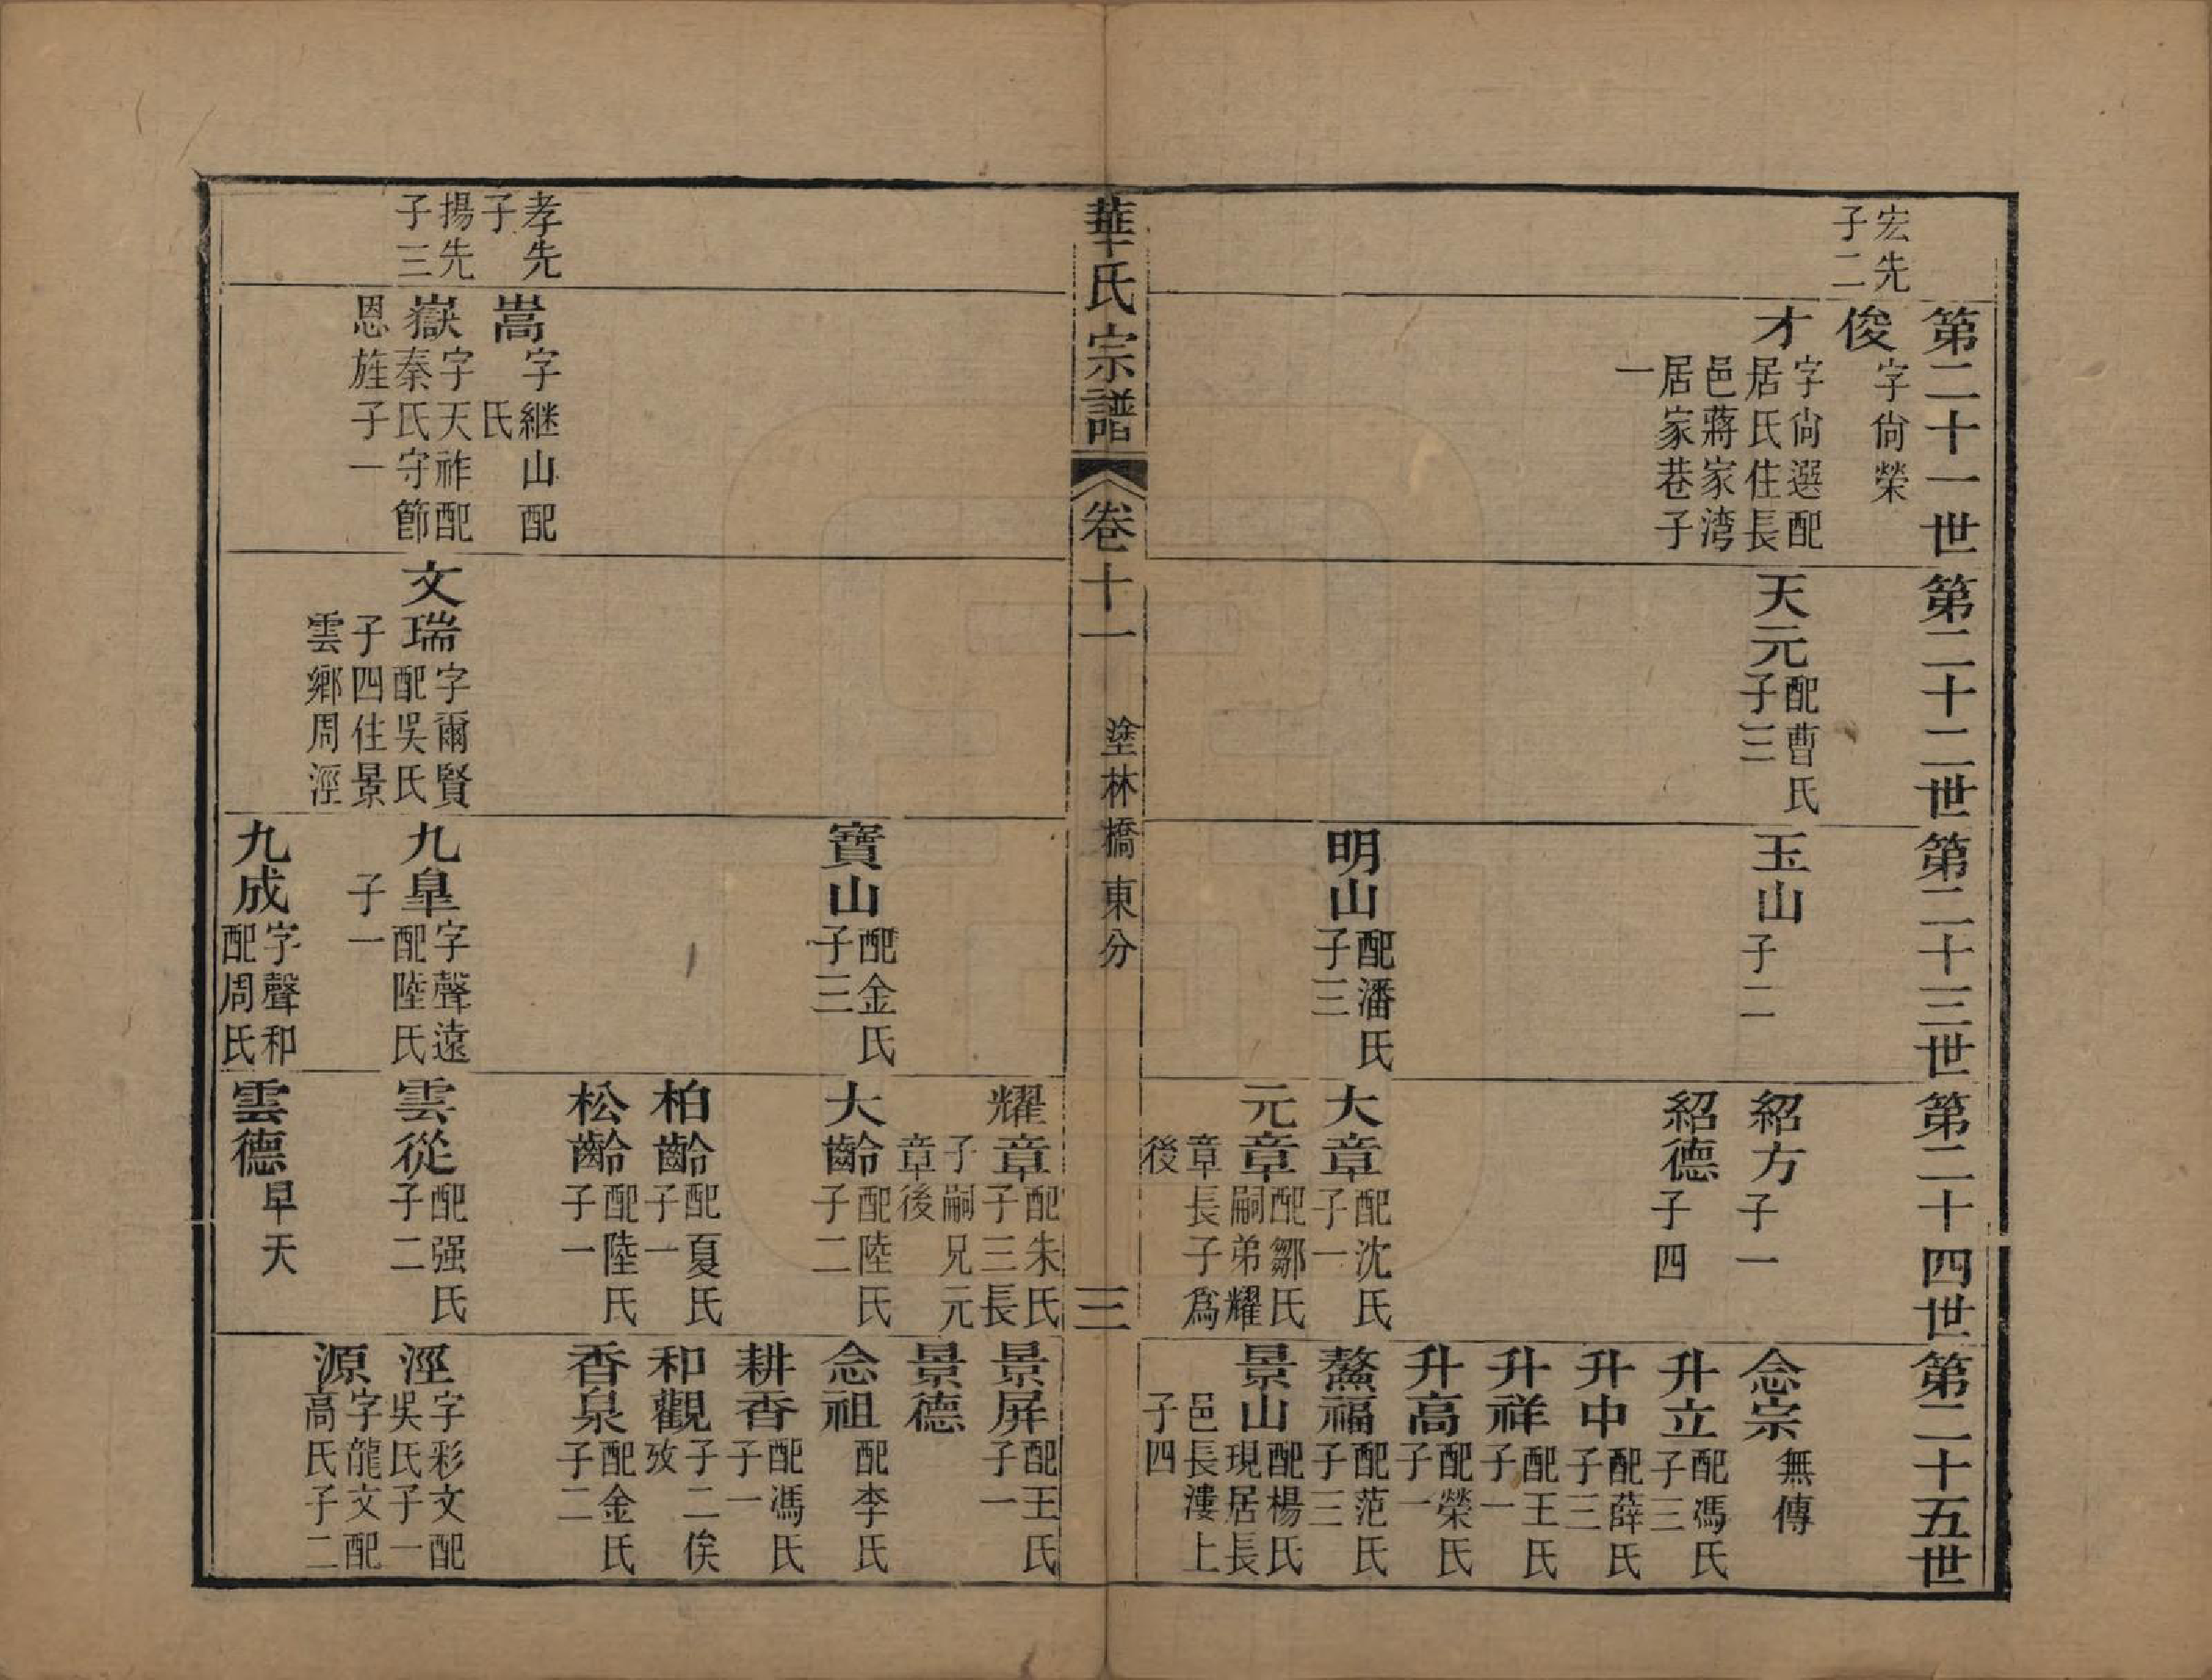 宏先
子二
第二十一世
俊
字尙榮
才
字尙選配
居氏住長
邑蔣家湾
居家巷子
一
第二十二世
天元
配曹氏
子三
第二十三世
玉山
子二
明山
配潘氏
子三
第二十四世
紹方
子一
紹德
子四
大章
配沈氏
子一
元章
配鄒氏
嗣弟耀
章長子爲
後
第二十五世
念宗
無傳
升立
配馮氏
子三
升中
配薛氏
子三
升祥
配王氏
子一
升高
配榮氏
子一
鰲福
配范氏
子三
景山
配楊氏
現居長
邑長漊上
子四
華氏宗譜
卷十一
塗林橋東分
三
孝先
子
揚先
子三
嵩
字継山配
氏
嶽
字天祚配
秦氏守節
恩旌子一
文瑞
字爾賢
配吳氏
子四住景
雲鄉周涇
寶山
配金氏
子三
九臯
字聲遠
配陸氏
子一
九成
字聲和
配周氏
耀章
配朱氏
子三長
子嗣兄元
章後
大齡
配陸氏
子二
柏齡
配夏氏
子一
松齡
配陸氏
子一
雲從
配强氏
子二
雲德
早夭
景屏
配王氏
子一
景德
念祖
配李氏
耕香
配馮氏
子一
和觀
子二俟
攷
香泉
配金氏
子二
涇
字彩文配
吳氏子一
源
字龍文配
高氏子二